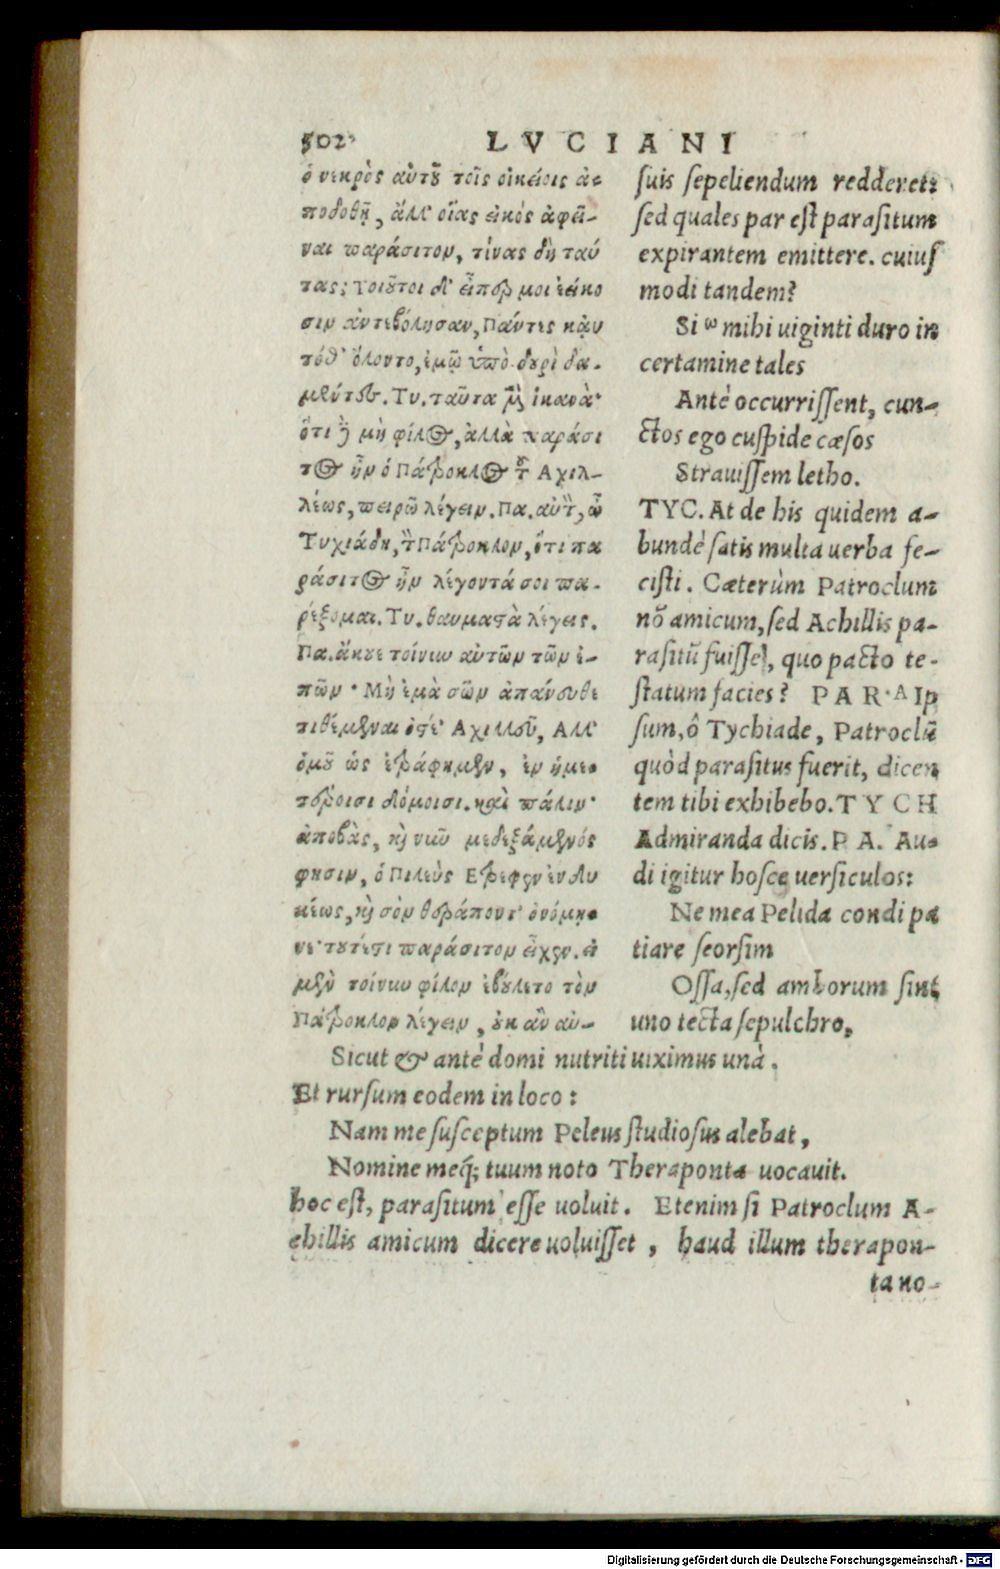 502
LVCIANI
ὁ νεκρὸς αὐτοῦ τοῖς οἰκείοις ἀ-
ποδοθῇ, ἀλλ' οἵας εἰκὸς ἀφεῖ-
ναι παράσιτον, τίνας δὴ ταύ
τας; τοιοῦτοι δ' εἴπερ μοι ἐείκο
σιν ἀντεβόλησαν, Πάντες κἂν
τόθ' ὄλοντο, ἐμῷ ὑπὸ δουρὶ δα-
μέντες. Τυ. ταῦτα μὲν ἱκανὰ·
ὅτι δὲ μὴ φίλος, ἀλλὰ παράσι
τος ἦν ὁ Πάτροκλος τοῦ Αχιλ-
λέως, πειρῶ λέγειν. Πα. αὐτὸν, ὦ
Τυχιάδη, τὸν Πάτροκλον, ὅτι πα
ράσιτος ἦν λέγοντά σοι πα-
ρέξομαι. Τυ. θαυμαστὰ λέγεις.
Πα. ἄκουε τοίνυν αὐτῶν τῶν ἐ-
πῶν· Μὴ ἐμὰ σῶν ἀπάνευθε
τιθέμεναι ὀστέ' Αχιλλεῦ, Αλλ'
ὁμοῦ ὡς ἐτράφημεν, ἐν ὑμε-
τέροισι δόμοισι. καὶ πάλιν·
ἀποβὰς, καὶ νῦν με δεξάμενός
φησιν, ὁ Πιλεὺς Ετρεφεν ἐνδυ
κέως, καὶ σὸν θεράποντ' ὀνόμη-
νε· τουτέστι παράσιτον εἶχεν. εἰ
μὲν τοίνυν φίλον ἐβούλετο τὸν
Πάτροκλον λέγειν, οὐκ ἂν αὐ-
suis sepeliendum redderet:
sed quales par est parasitum
expirantem emittere. cuius
modi tandem?
Si ω mihi uiginti duro in
certamine tales
Antè occurrissent, cun-
ctos ego cuspide cæsos
Strauissem letho.
TYC. At de his quidem a-
bundè satis multa uerba fe-
cisti. Cæterùm Patroclum
nõ amicum, sed Achillis pa-
rasitũ fuisse, quo pacto te-
statum facies? PAR. A Ip
sum, ô Tychiade, Patroclũ
quòd parasitus fuerit, dicen
tem tibi exhibebo. TYCH
Admiranda dicis. PA. Au-
di igitur hosce uersiculos:
Ne mea Pelida condi pa
tiare seorsim
Ossa, sed amborum sint
uno tecta sepulchro,
Sicut & antè domi nutriti uiximus unà.
Et rursum eodem in loco:
Nam me susceptum Peleus studiosus alebat,
Nomine meq́; tuum noto Theraponta uocauit.
hoc est, parasitum esse uoluit. Etenim si Patroclum A-
chillis amicum dicere uoluisset, haud illum therapon-
ta no-
Digitalisierung gefördert durch die Deutsche Forschungsgemeinschaft - DFG